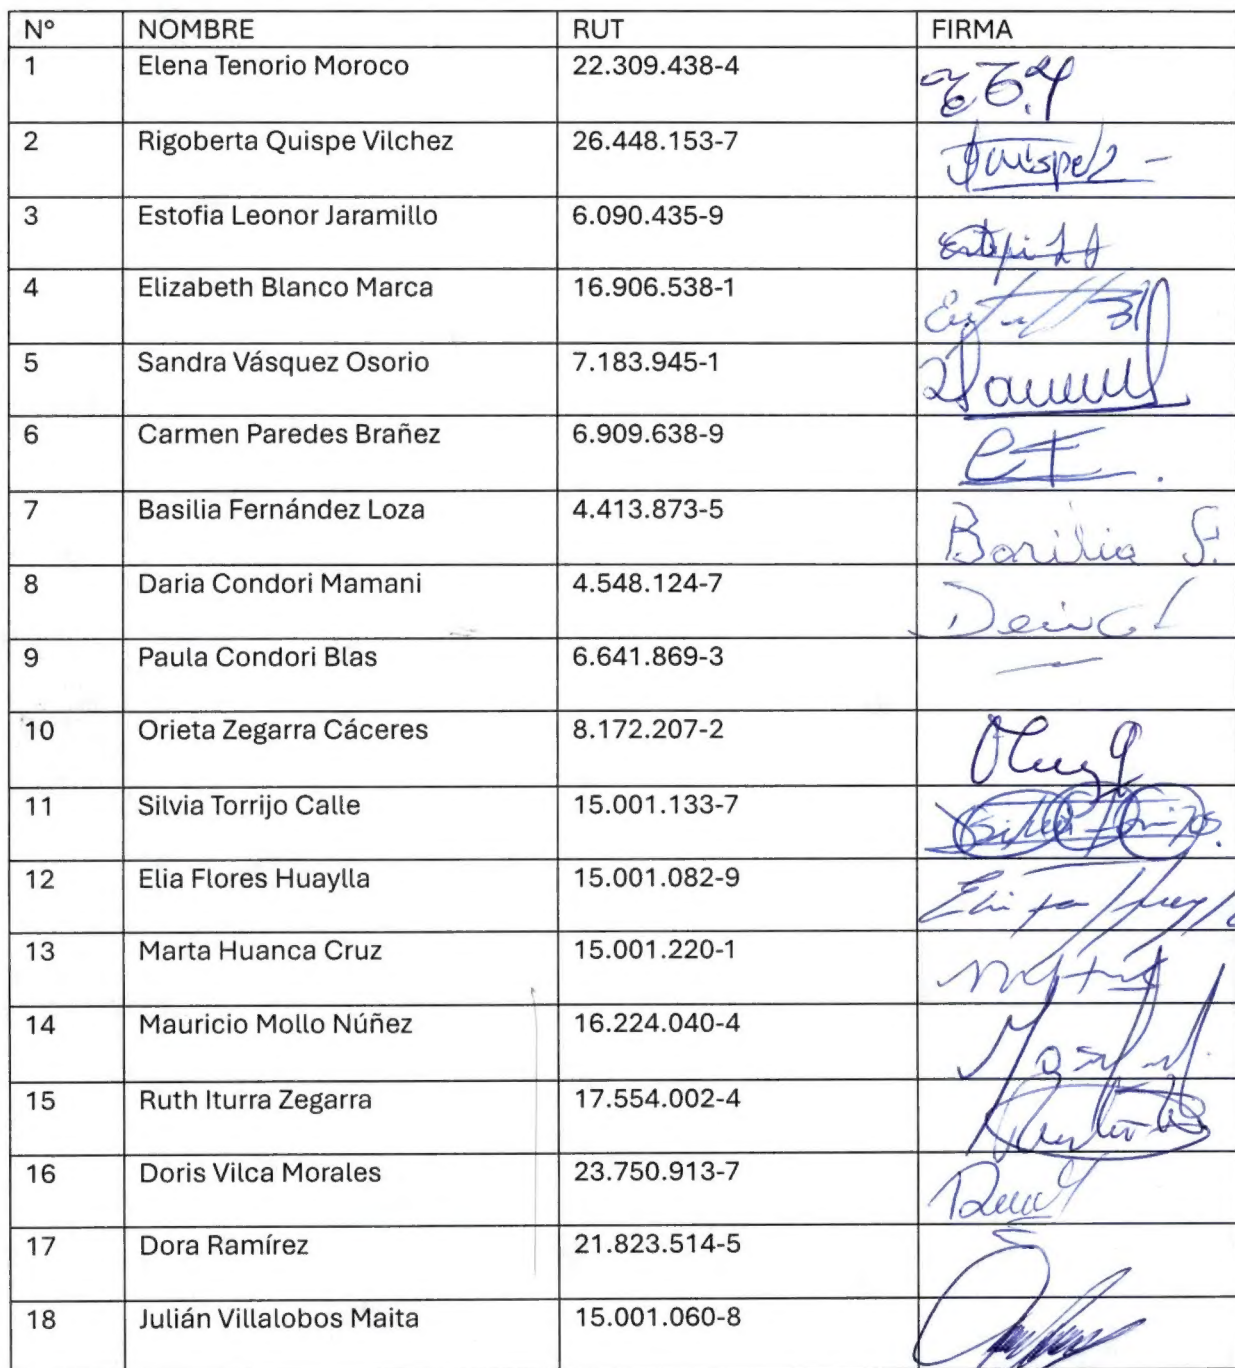 Nº NOMBRE RUT FIRMA
1 Elena Tenorio Moroco 22.309.438-4 E.T.M
2 Rigoberta Quispe Vilchez 26.448.153-7 Quispe
3 Estofia Leonor Jaramillo 6.090.435-9
4 Elizabeth Blanco Marca 16.906.538-1
5 Sandra Vásquez Osorio 7.183.945-1
6 Carmen Paredes Brañez 6.909.638-9
7 Basilia Fernández Loza 4.413.873-5 Basilia F.
8 Daria Condori Mamani 4.548.124-7
9 Paula Condori Blas 6.641.869-3
10 Orieta Zegarra Cáceres 8.172.207-2
11 Silvia Torrijo Calle 15.001.133-7
12 Elia Flores Huaylla 15.001.082-9
13 Marta Huanca Cruz 15.001.220-1
14 Mauricio Mollo Núñez 16.224.040-4
15 Ruth Iturra Zegarra 17.554.002-4
16 Doris Vilca Morales 23.750.913-7
17 Dora Ramírez 21.823.514-5
18 Julián Villalobos Maita 15.001.060-8